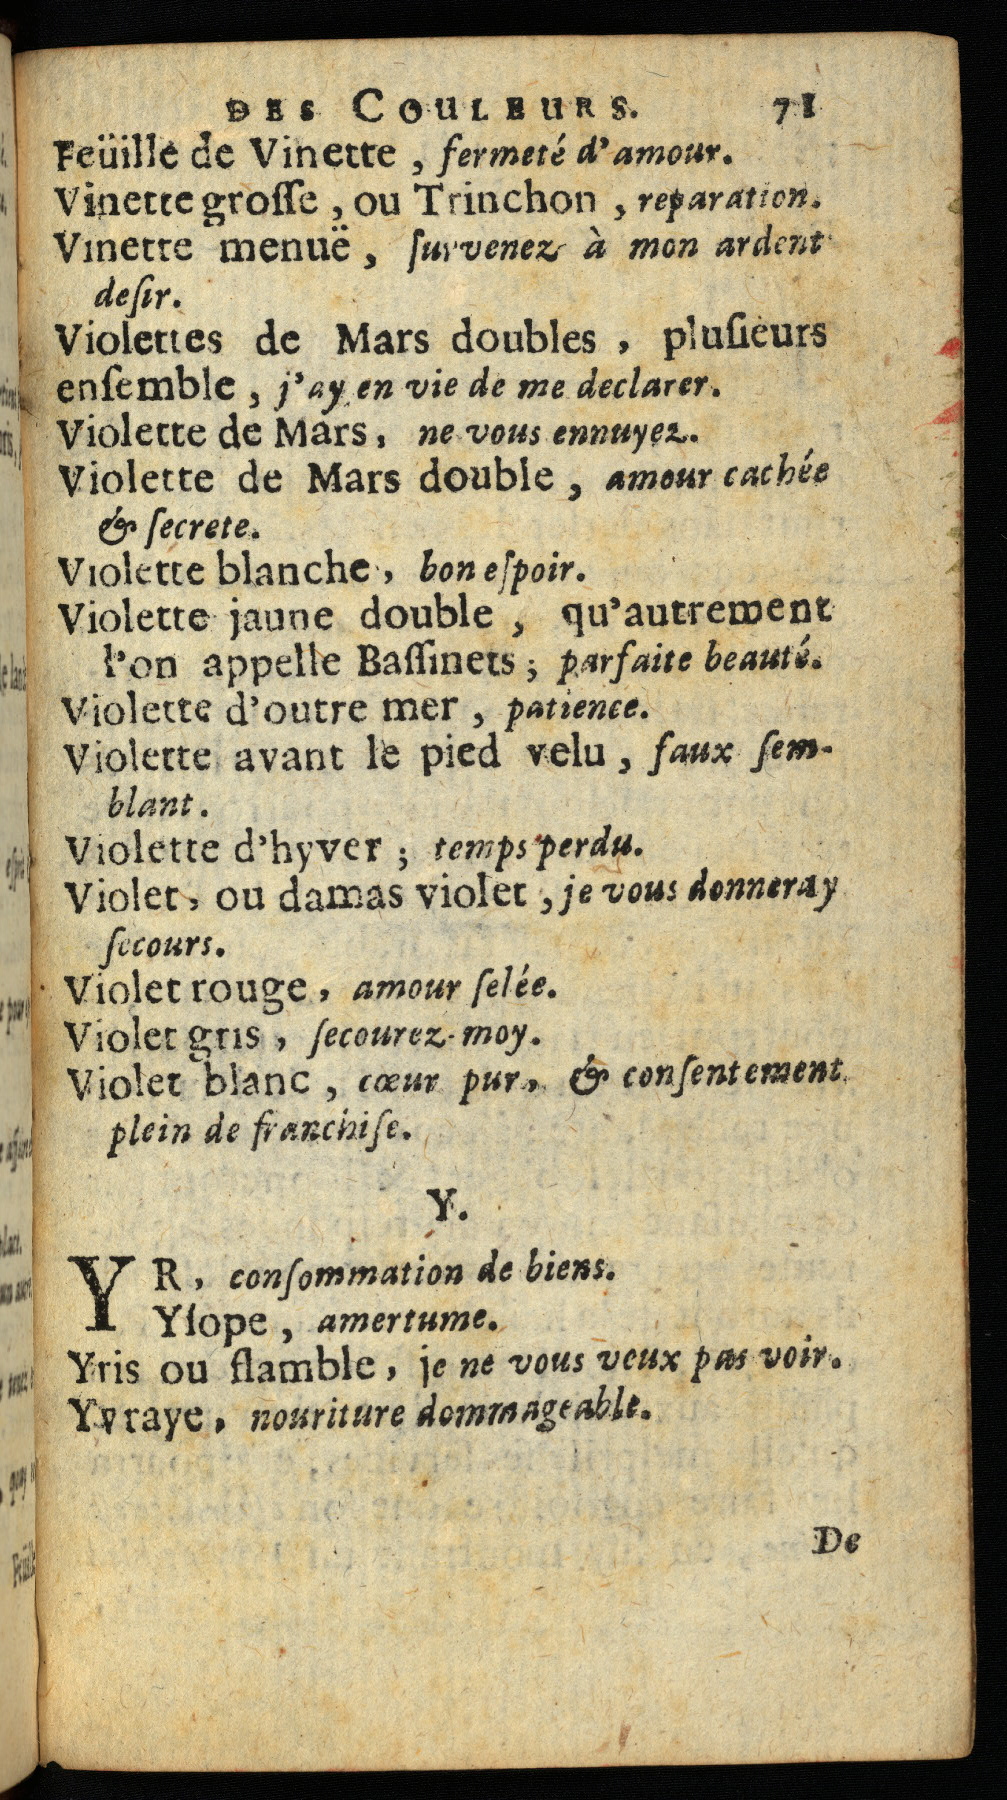 DES COULEURS. 71
Feüille de Vinette, fermeté d'amour.
Vinette grosse, ou Trinchon, reparation.
Vinette menuë, ſurvenez à mon ardent
deſir.
Violettes de Mars doubles, pluſieurs
enſemble, j'ay en vie de me declarer.
Violette de Mars, ne vous ennuyez.
Violette de Mars double, amour cachée
& ſecrete.
Violette blanche, bon eſpoir.
Violette jaune double, qu'autrement
l'on appelle Baſſinets; parfaite beauté.
Violette d'outre mer, patience.
Violette avant le pied velu, faux ſem-
blant.
Violette d'hyver; temps perdu.
Violet, ou damas violet, je vous donneray
ſecours.
Violet rouge, amour ſelée.
Violet gris, ſecourez-moy.
Violet blanc, cœur pur, & conſentement
plein de franchiſe.
Y.
YR, conſommation de biens.
Yſope, amertume.
Yris ou flamble, je ne vous veux pas voir.
Yvraye, nouriture dommageable.
De